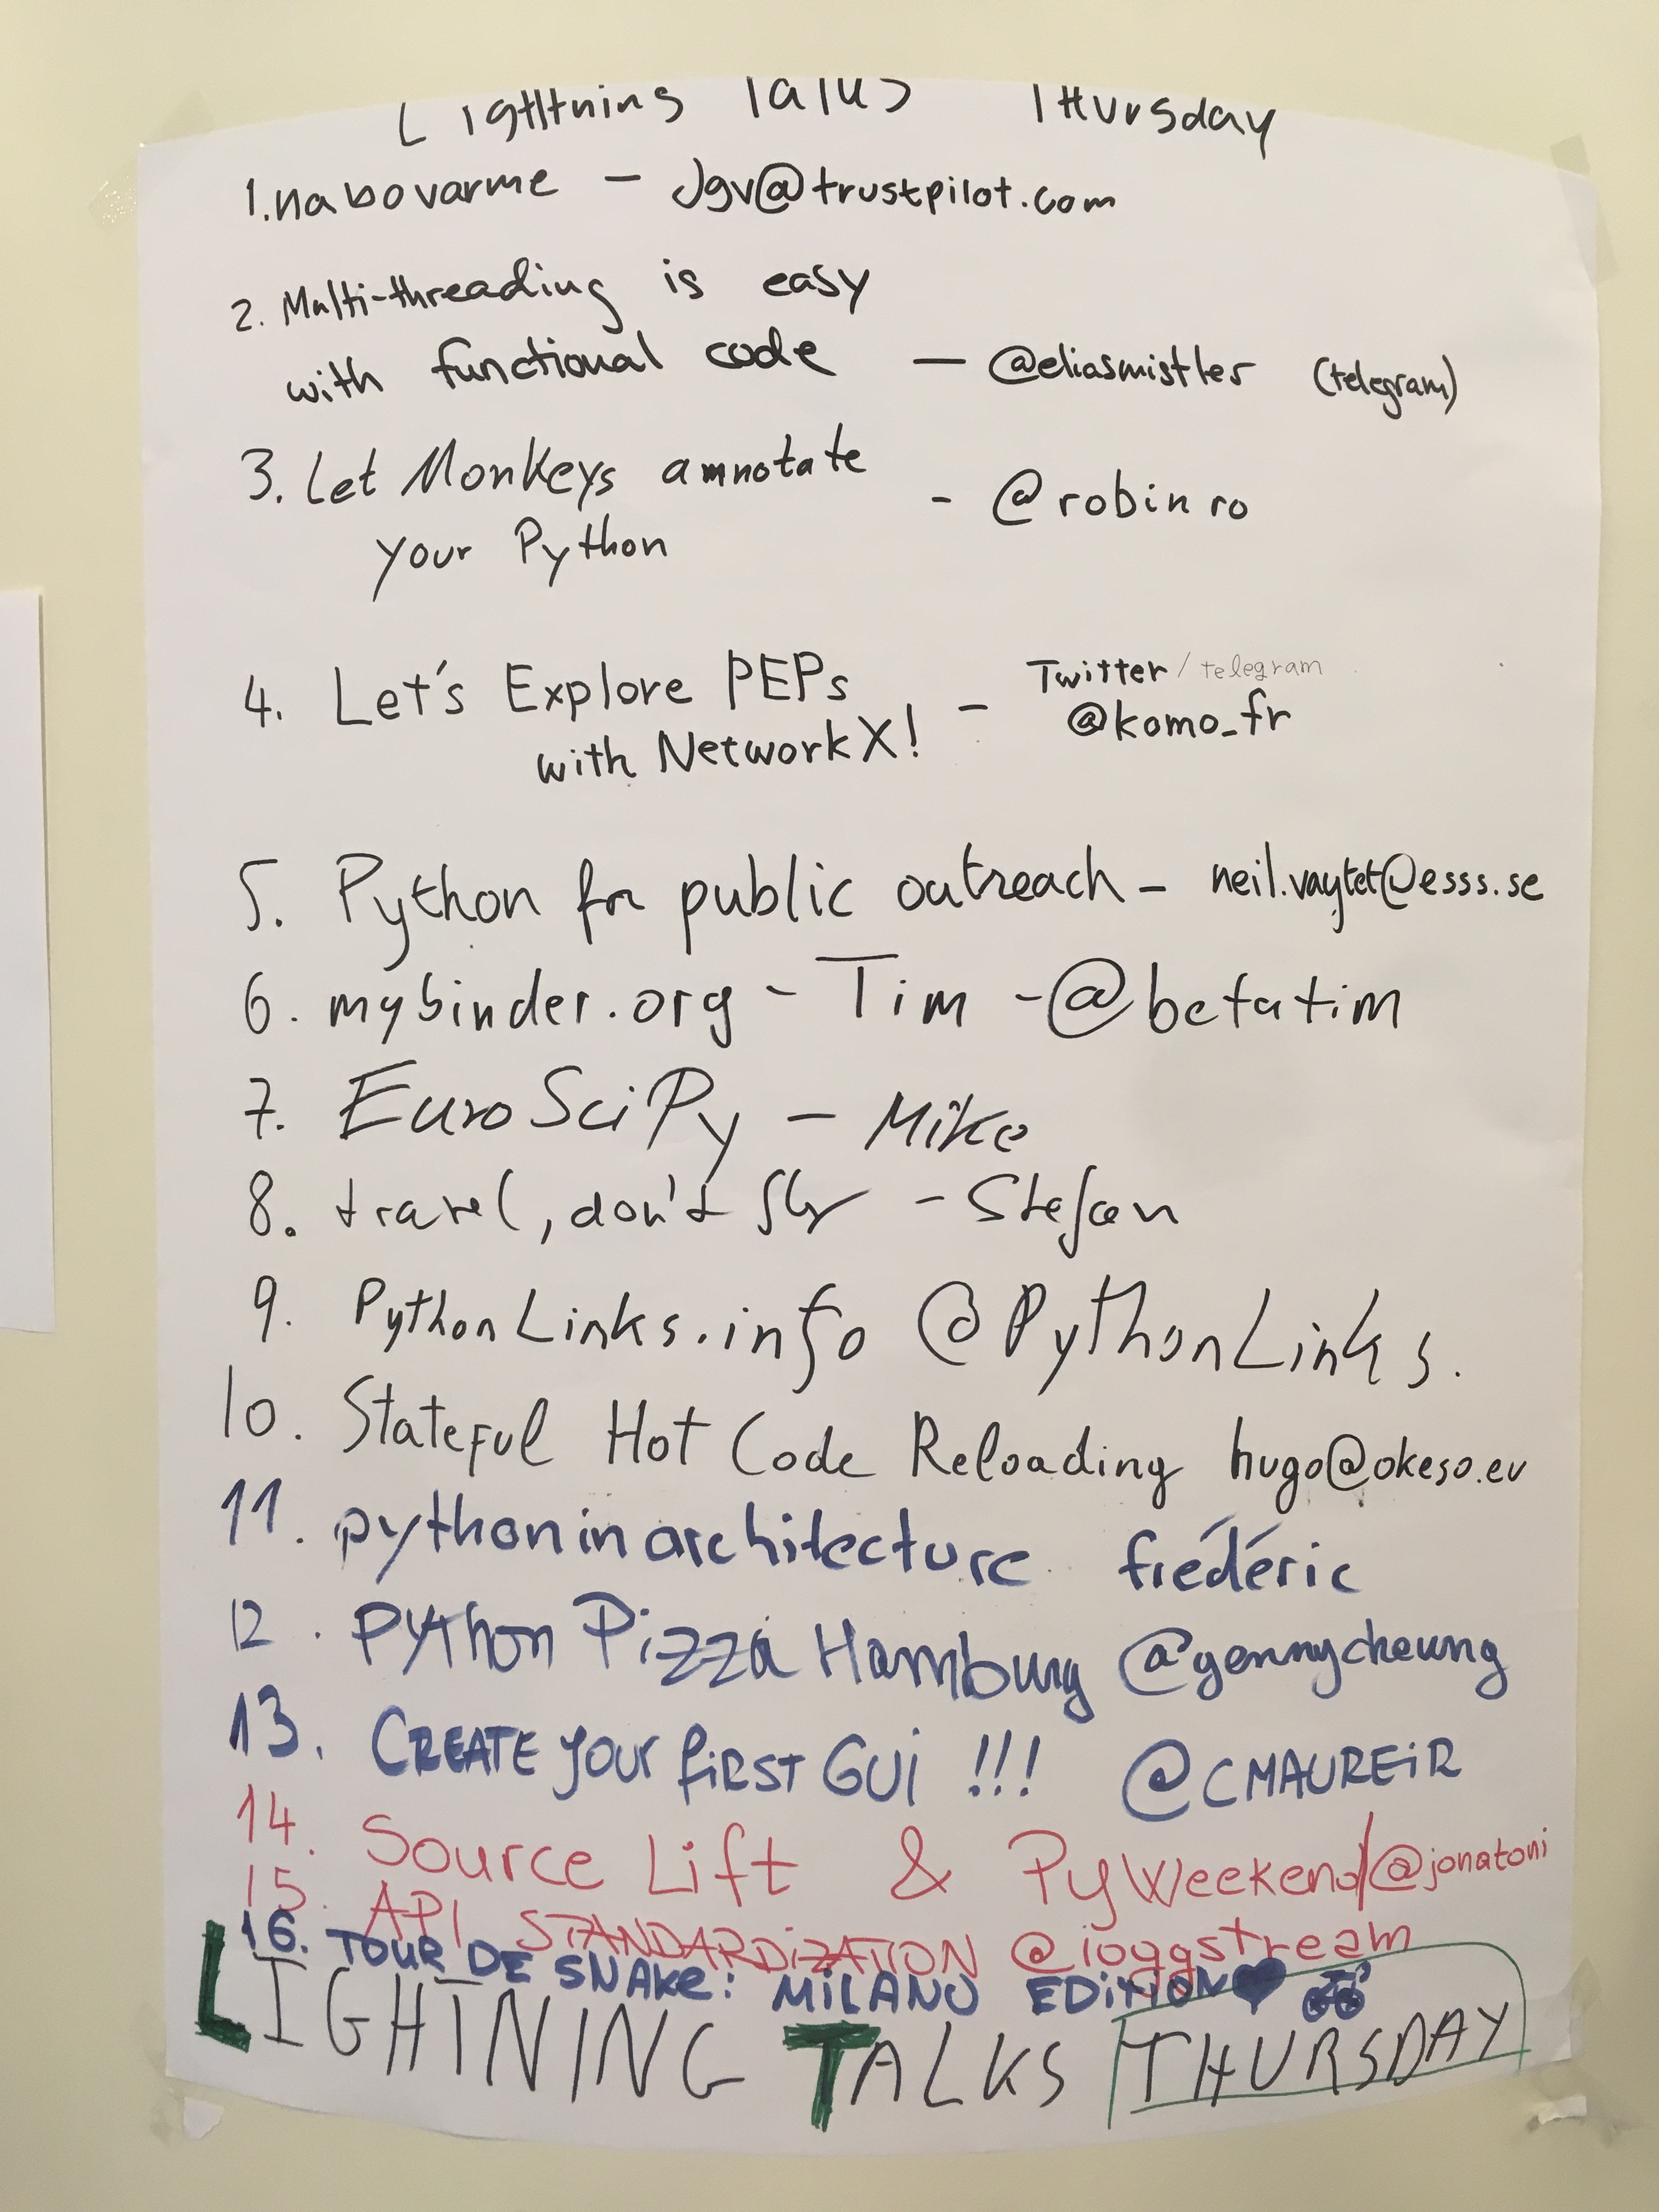 Lightning Talks Thursday
1. nabovarme - Jgv@trustpilot.com
2. Multi-threading is easy
with functional code - @eliasmistler (telegram)
3. Let Monkeys annotate
your Python - @robinro
4. Let's Explore PEPs - Twitter/telegram
with NetworkX! @komo_fr
5. Python for public outreach - neil.vaytet@esss.se
6. mybinder.org - Tim - @betatim
7. EuroSciPy - Mike
8. travel, don't fly - Stefan
9. PythonLinks.info @PythonLinks.
10. Stateful Hot Code Reloading hugo@okeso.eu
11. python in architecture frédéric
12. Python Pizza Hamburg @gennycheung
13. CREATE your fiRST GUi !!! @CMAUREiR
14. Source Lift & PyWeekend/@jonatoni
15. API STANDARDiZATION @ioggstream
16. TOUR DE SNAKe: MiLANO EDiTiON
LIGHTNING TALKS THURSDAY